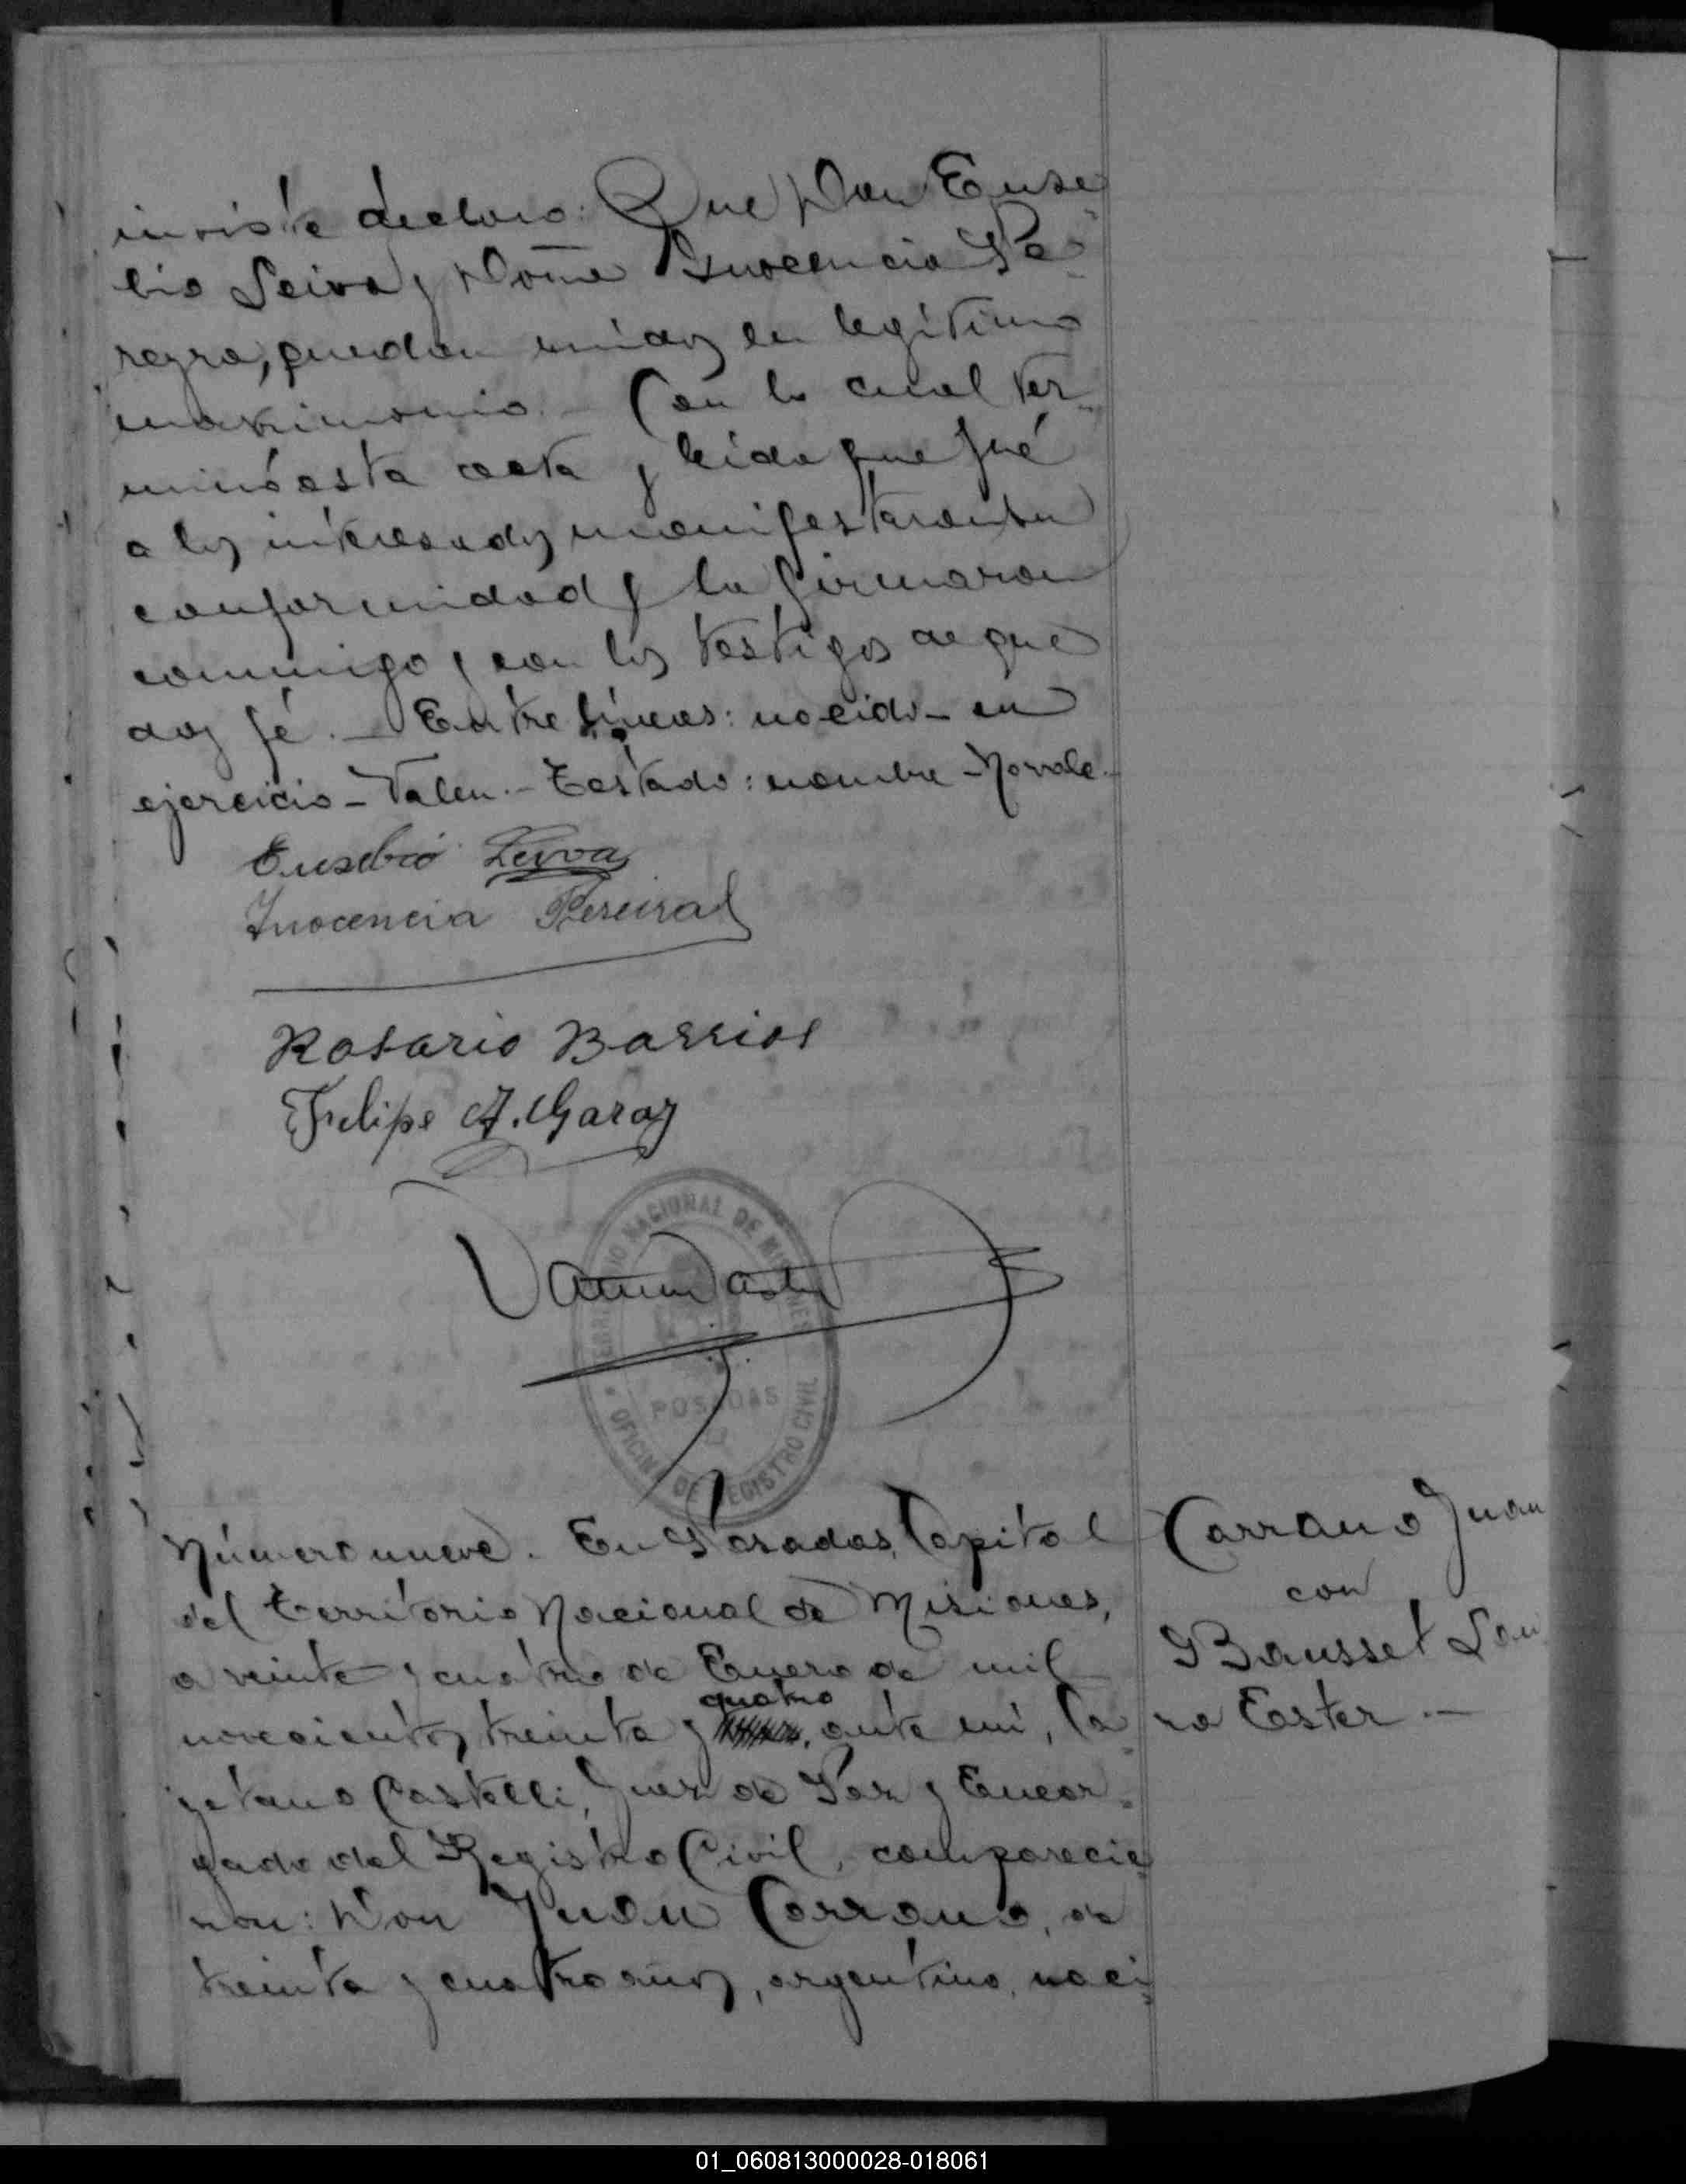 inviste declaro: Que Don Euse
bio Leiva y Doña Inocencia Pe-
reyra, quedan unidos en legítimo
matrimonio. - Con lo cual ter-
minó esta acta y leída que fué
a los interesados manifestaron su
conformidad y la firmaron
conmigo y con los testigos de que
doy fé. - Entre líneas: nacido - en
ejercicio - Valen. - Testado: nombre - No vale.
Eusebio Leiva
Inocencia Pereira
Rosario Barrios
Felipe A. Garay
TERRITORIO NACIONAL DE MISIONES
POSADAS
OFICINA DE REGISTRO CIVIL
Número nueve. En Posadas, Capital
del Territorio Nacional de Misiones,
a veinte y cuatro de Enero de mil
novecientos treinta y cuatro, ante mí, Ca
yetano Castelli, Juez de Paz y Encar-
gado del Registro Civil, comparecie
ron: Don Juan Carrano, de
treinta y cuatro años, argentino, naci-
Carrano Juan
con
Bausset Lau
ra Ester. -
01_060813000028-018061